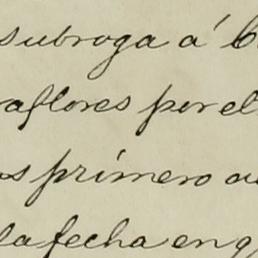 subroga á
aflores por el
os primero
la fecha en